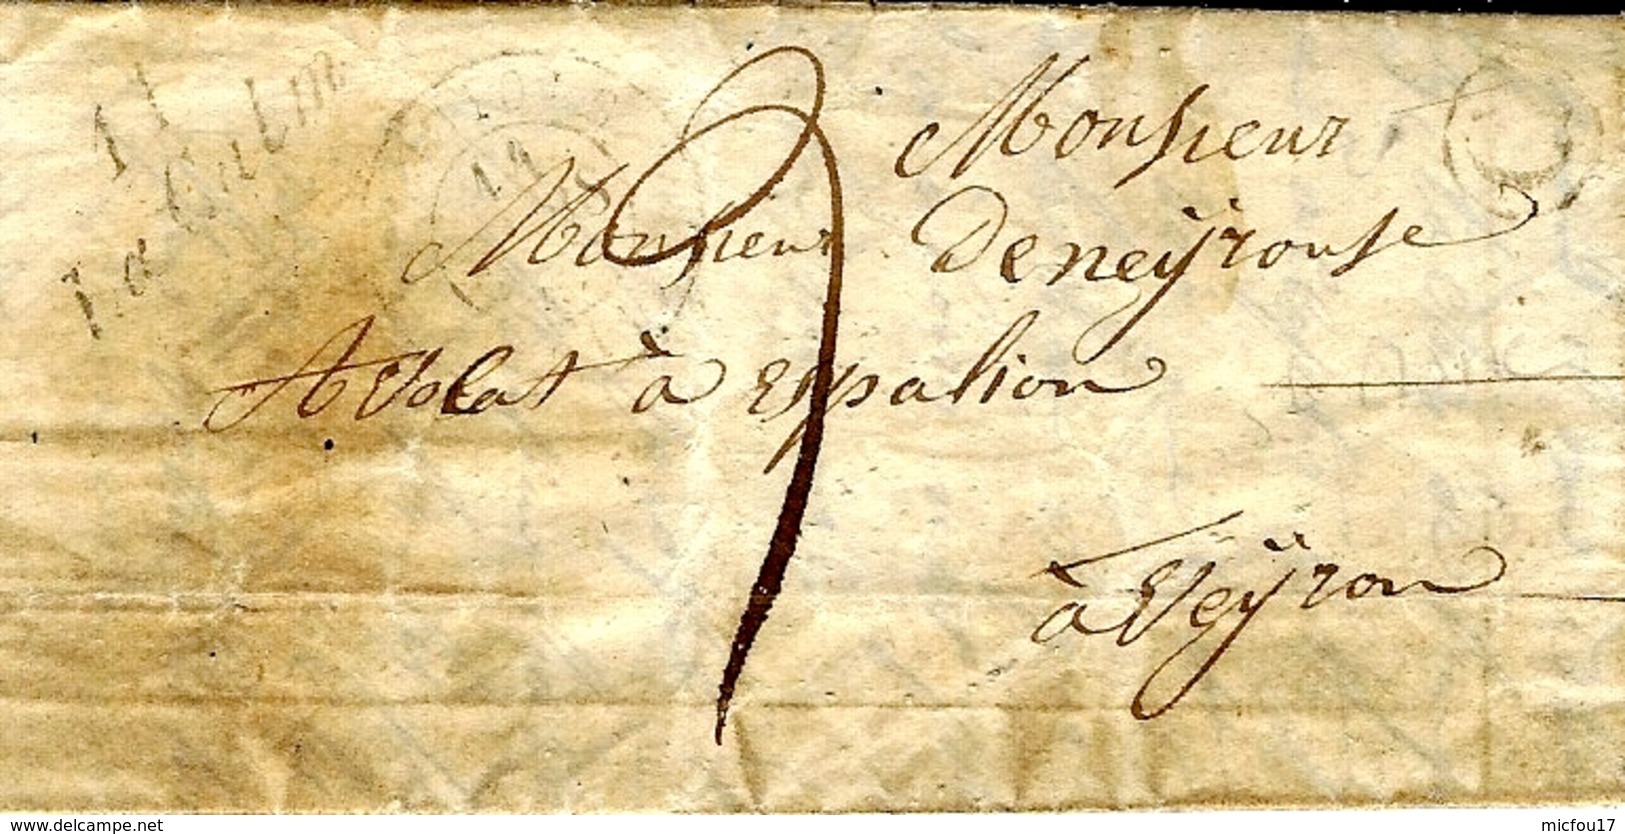 11
La Calm
19
Monsieur
Monsieur Deneÿrouse
Avocat à espalion
aveÿron
www.delcampe.net
micfou17